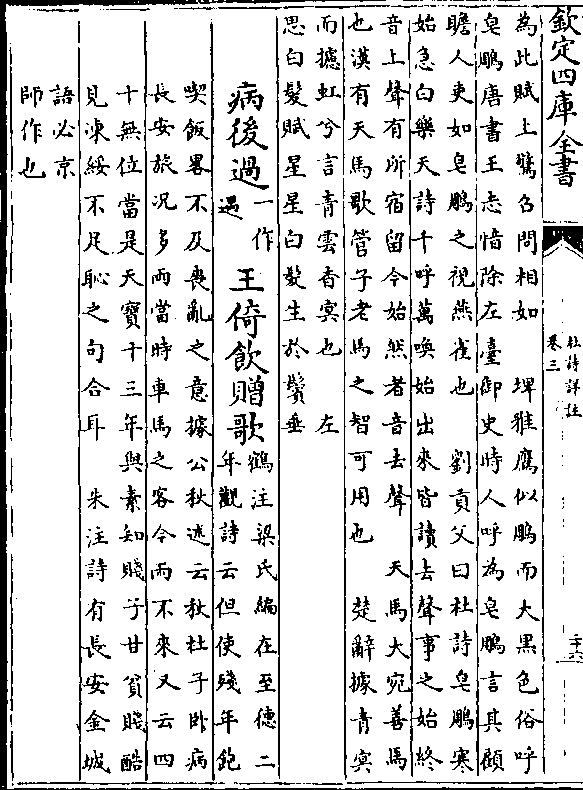 欽定四庫全書
杜詩詳註
卷三
二十六
為此賦上驚召問相如　埤雅鷹似鵰而大黑色俗呼
皂鵰唐書王志愔除左臺御史時人呼為皂鵰言其顧
瞻人吏如皂鵰之視燕雀也　劉貢父曰杜詩皂鵰寒
始急白樂天詩千呼萬喚始出來皆讀去聲事之始終
音上聲有所宿留今始然者音去聲　天馬大宛善馬
也漢有天馬歌管子老馬之智可用也　楚辭據青冥
而攄虹兮言青雲杳冥也　左
思白髮賦星星白髮生於鬢垂
病後過一作遇王倚飲贈歌
鶴注梁氏編在至德二
年觀詩云但使殘年飽
喫飯畧不及喪亂之意據公秋述云秋杜子卧病
長安旅況多雨當時車馬之客今雨不來又云四
十無位當是天寶十三年與素知賤子甘貧賤酷
見凍綏不足恥之句合耳　朱注詩有長安金城
語必京
師作也